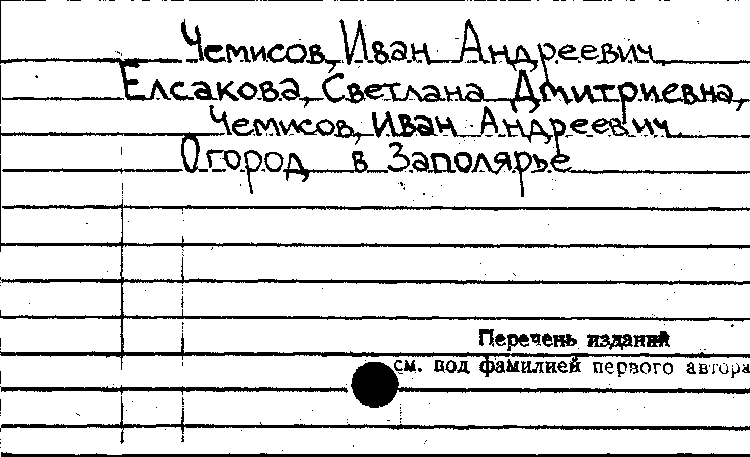 Чемисов, Иван Андреевич.
Елсакова, Светлана Дмитриевна,
Чемисов, Иван Андреевич
Огород в Заполярье
Перечень изданий
см. под фамилией первого автора